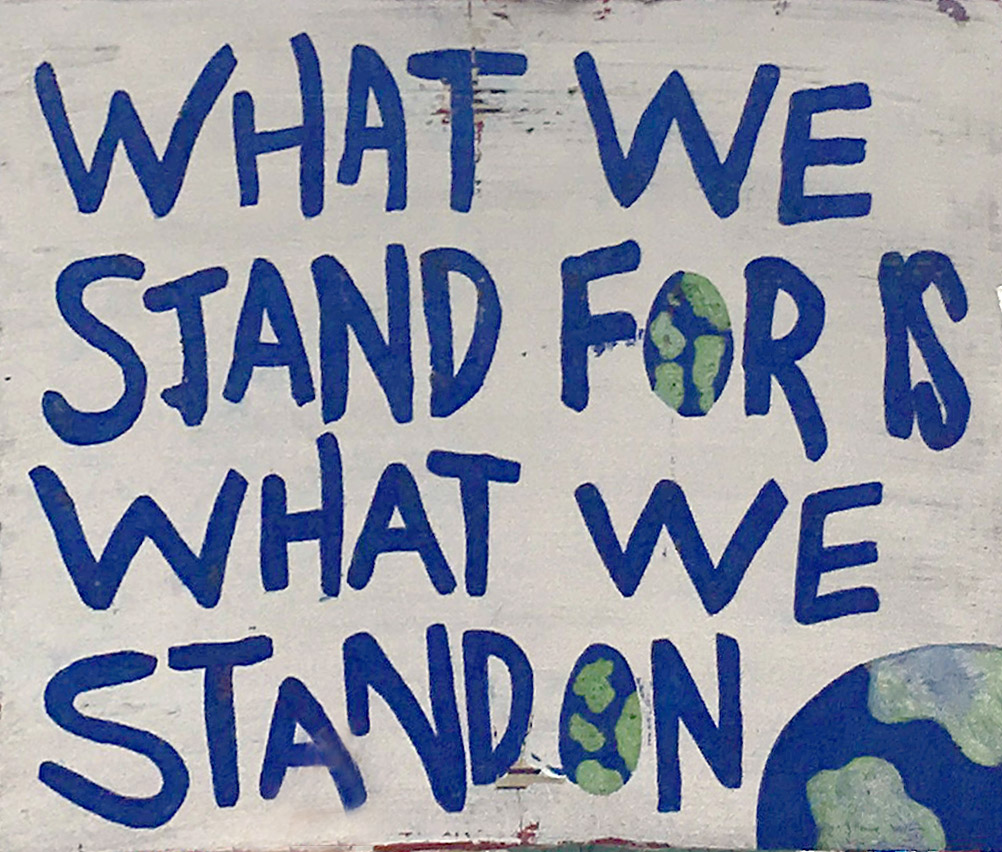 WHAT WE
STAND FOR IS
WHAT WE
STAND ON